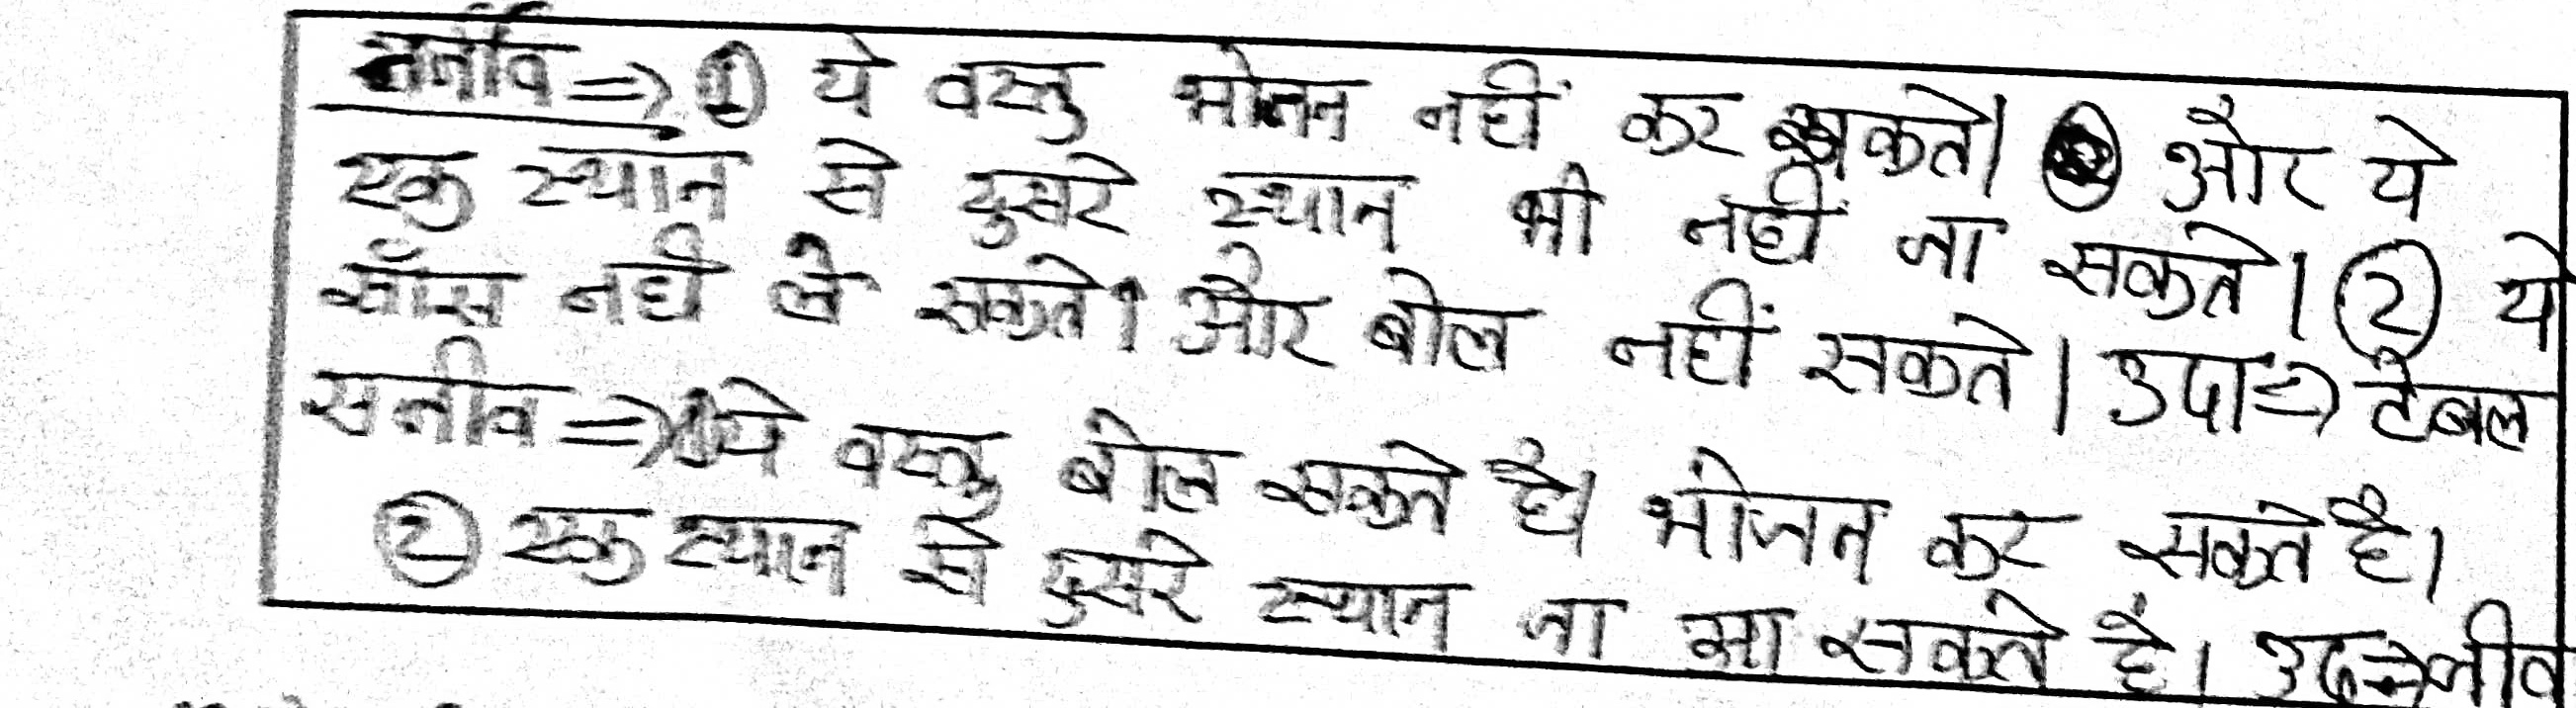 निर्जीव => ① ये वस्तु भोजन नहीं कर सकते। और ये
एक स्थान से दुसरे स्थान भी नहीं जा सकते। ② ये
साँस नहीं ले सकते। और बोल नहीं सकते। उदा => टेबल
सजीव => ① ये वस्तु बोल सकते है। भोजन कर सकते है।
② एक स्थान से दुसरे स्थान जा आ सकते है। उदा => जीव